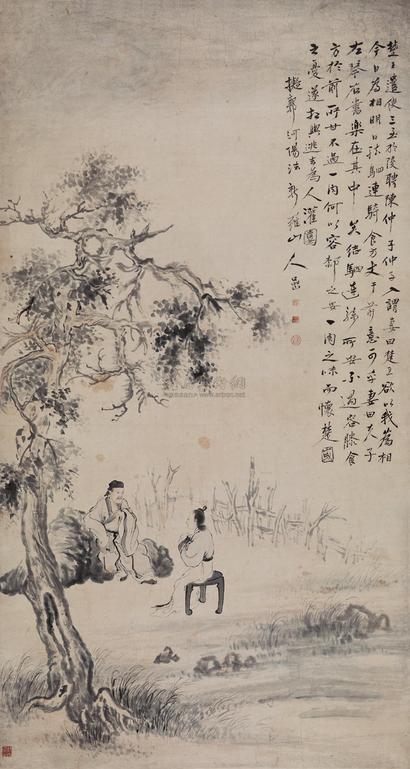 楚王遣使三至於陵聘陳仲子仲子入謂妻曰楚王欲以我為相
今日為相明日結駟連騎食方丈于前意可乎妻曰夫子
左琴右書樂在其中矣結駟連騎所安不過容膝食
方於前所甘不過一肉何以容膝之安一肉之味而懷楚國
之憂遂相與逃去為人灌園
擬郭河陽法 新羅山人嵒